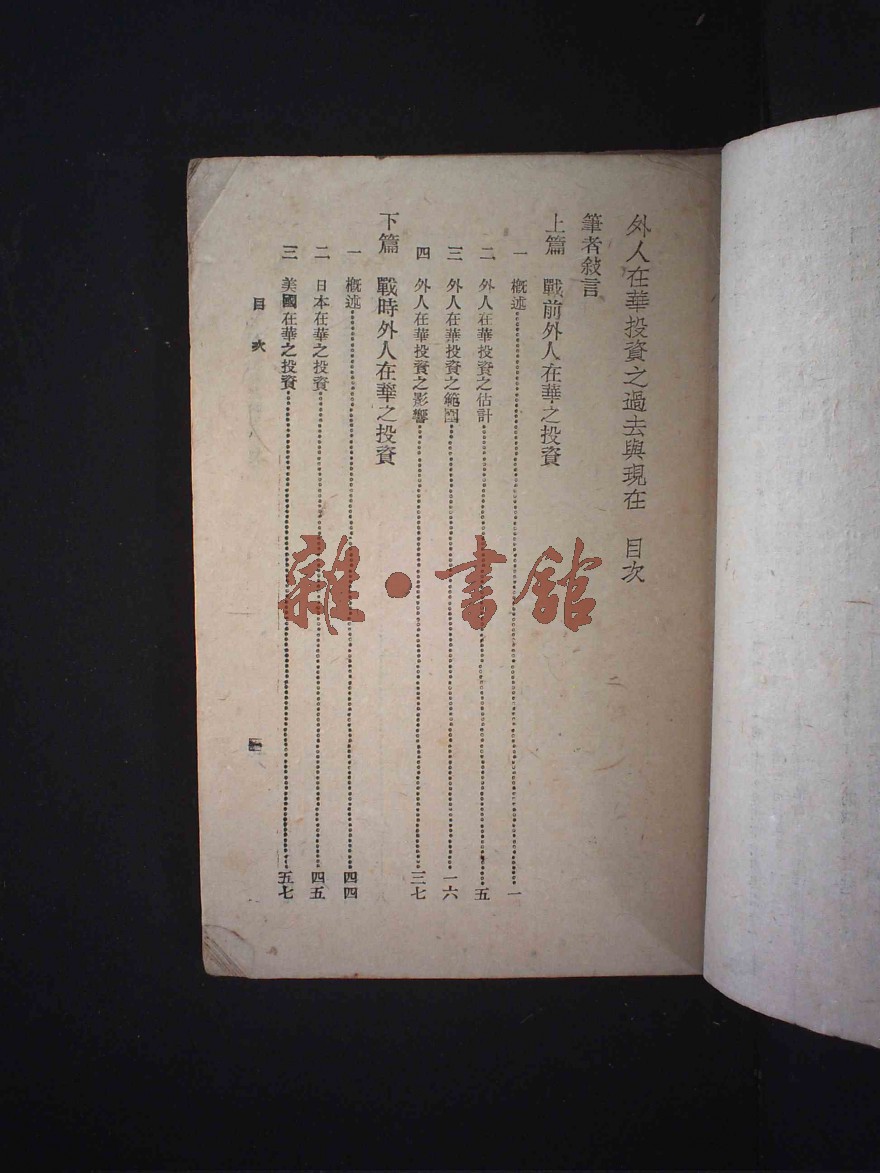 外人在華投資之過去與現在 目次
筆者敍言
上篇 戰前外人在華之投資
一 概述 一
二 外人在華投資之估計 五
三 外人在華投資之範圍 一六
四 外人在華投資之影響 三七
下篇 戰時外人在華之投資
一 概述 四四
二 日本在華之投資 四五
三 美國在華之投資 五七
目次
雜·書館